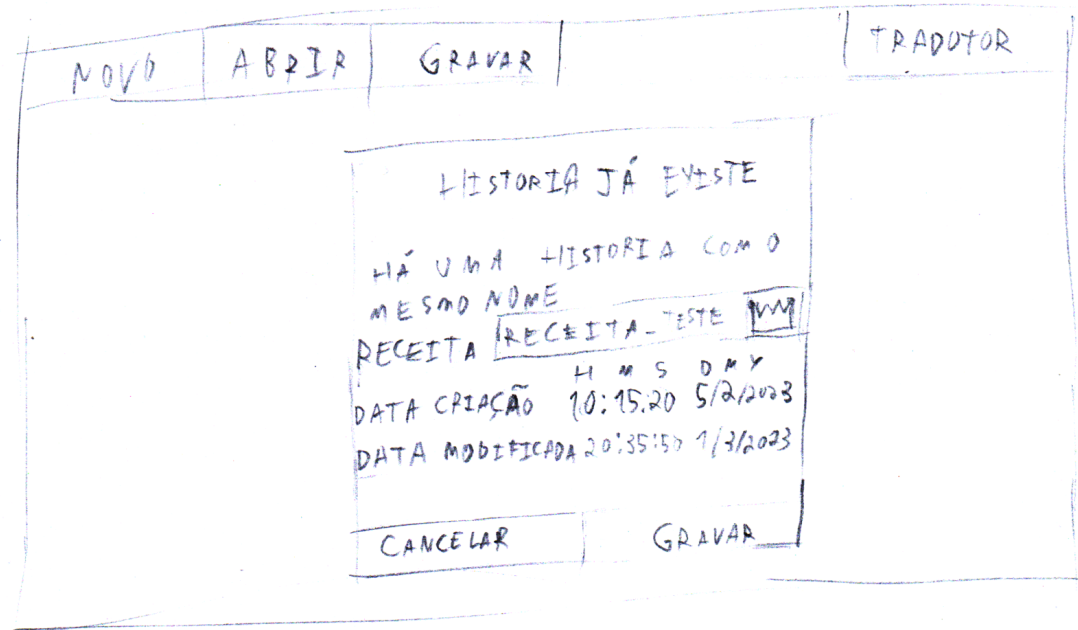 NOVO ABRIR GRAVAR TRADUTOR
HISTORIA JÁ EXISTE
HÁ UMA HISTORIA COM O
MESMO NOME
RECEITA RECEITA_TESTE
H M S D M Y
DATA CRIAÇÃO 10:15:20 5/2/2023
DATA MODIFICADA 20:35:50 1/3/2023
CANCELAR GRAVAR